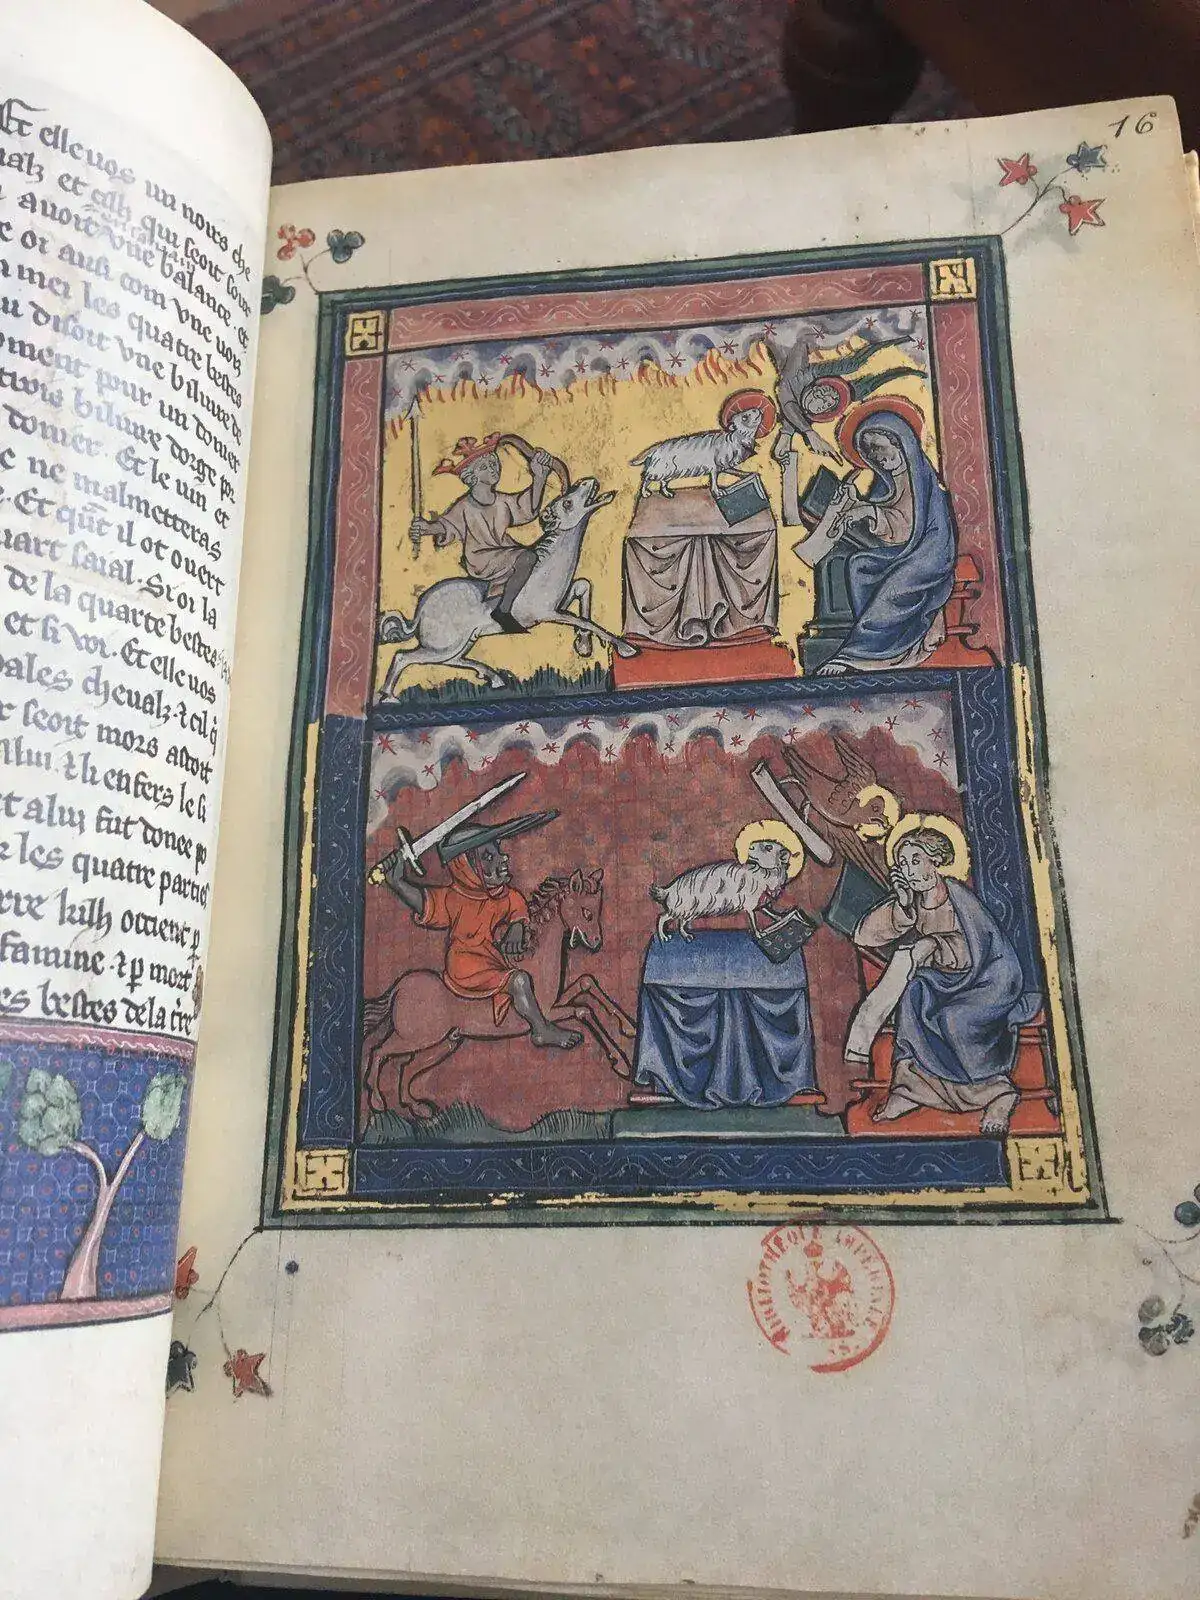 Et elle uos un noirs che
ualz et cilh qui seoit sour
auoit une balance. Et
oi ausi com une uoiz
mei les quatre bestes
disoit une biliure de
oment pour un donier
biliure dorge pr
donier. Et le uin et
ne malmetteras
Et qu̅t il ot ouert
uart saial. Si oi la
de la quarte bestes
et si voi. Et elle uos
pales cheualz. ⁊ cil q̅
seoit mors astoit
a lui. ⁊ li enfers le si
et a lui fut donee po
les quatre parties
kilh occient p̲
famine. ⁊ p̲ mort
es bestes de la t̅re
16
BIBLIOTHEQUE IMPERIALE